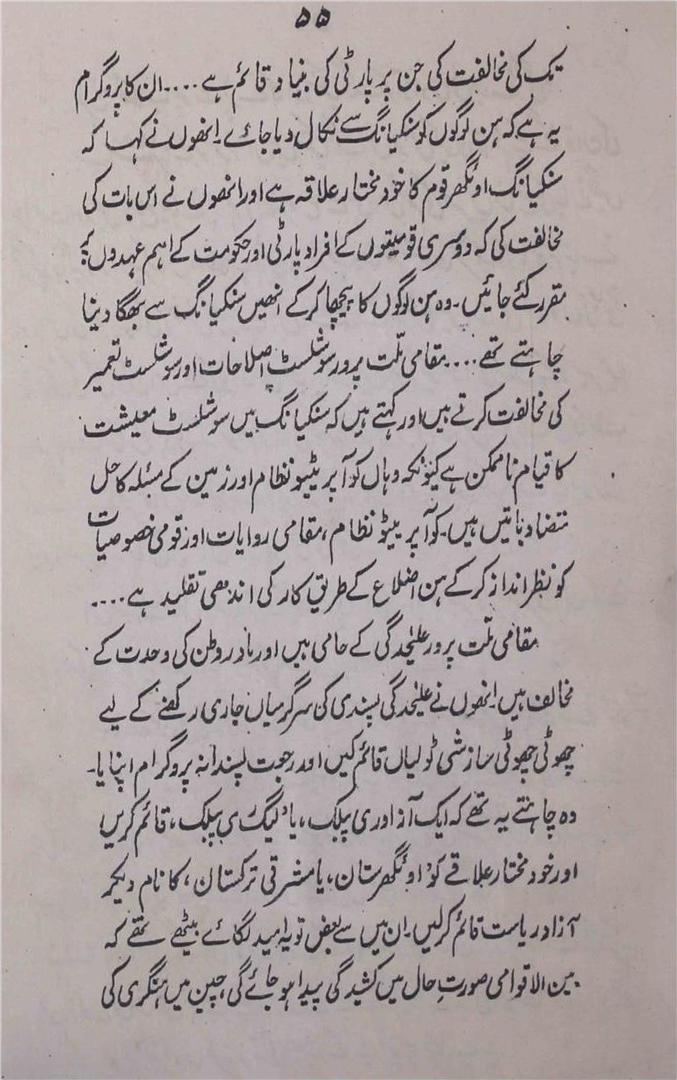 ۵۵
تک کی مخالفت کی جن پر پارٹی کی بنیاد قائم ہے .... ان کا پروگرام
یہ ہے کہ ہن لوگوں کو سنکیانگ سے نکال دیا جائے۔ انھوں نے کہا کہ
سنکیانگ اوئگھر قوم کا خود مختار علاقہ ہے اور انھوں نے اس بات کی
مخالفت کی کہ دوسری قومیتوں کے افراد پارٹی اور حکومت کے اہم عہدوں پر
مقرر کئے جائیں۔ وہ ہن لوگوں کا پیچھا کرکے انھیں سنکیانگ سے بھگا دینا
چاہتے تھے .... مقامی ملت پرور سوشلسٹ اصلاحات اور سوشلسٹ تعمیر
کی مخالفت کرتے ہیں اور کہتے ہیں کہ سنکیانگ میں سوشلسٹ معیشت
کا قیام ناممکن ہے کیونکہ وہاں کوآپریٹیو نظام اور زمین کے مسئلہ کا حل
متضاد باتیں ہیں۔ کوآپریٹیو نظام، مقامی روایات اور قومی خصوصیات
کو نظر انداز کرکے ہن اضلاع کے طریق کار کی اندھی تقلید ہے ....
مقامی ملت پرور علیٰحدگی کے حامی ہیں اور مادر وطن کی وحدت کے
مخالف ہیں۔ انھوں نے علیٰحدگی پسندی کی سرگرمیاں جاری رکھنے کے لیے
چھوٹی چھوٹی سازشی ٹولیاں قائم کیں اور رجعت پسندانہ پروگرام اپنایا۔
وہ چاہتے یہ تھے کہ ایک آزاد ری پبلک، یا 'لیگ ری پبلک' قائم کریں
اور خود مختار علاقے کو 'اوئگھرستان' یا 'مشرقی ترکستان' کا نام دیکر
آزاد ریاست قائم کرلیں۔ ان میں سے بعض تو یہ امید لگائے بیٹھے تھے کہ
بین الاقوامی صورتِ حال میں کشیدگی پیدا ہو جائے گی، چین میں ہنگری کی